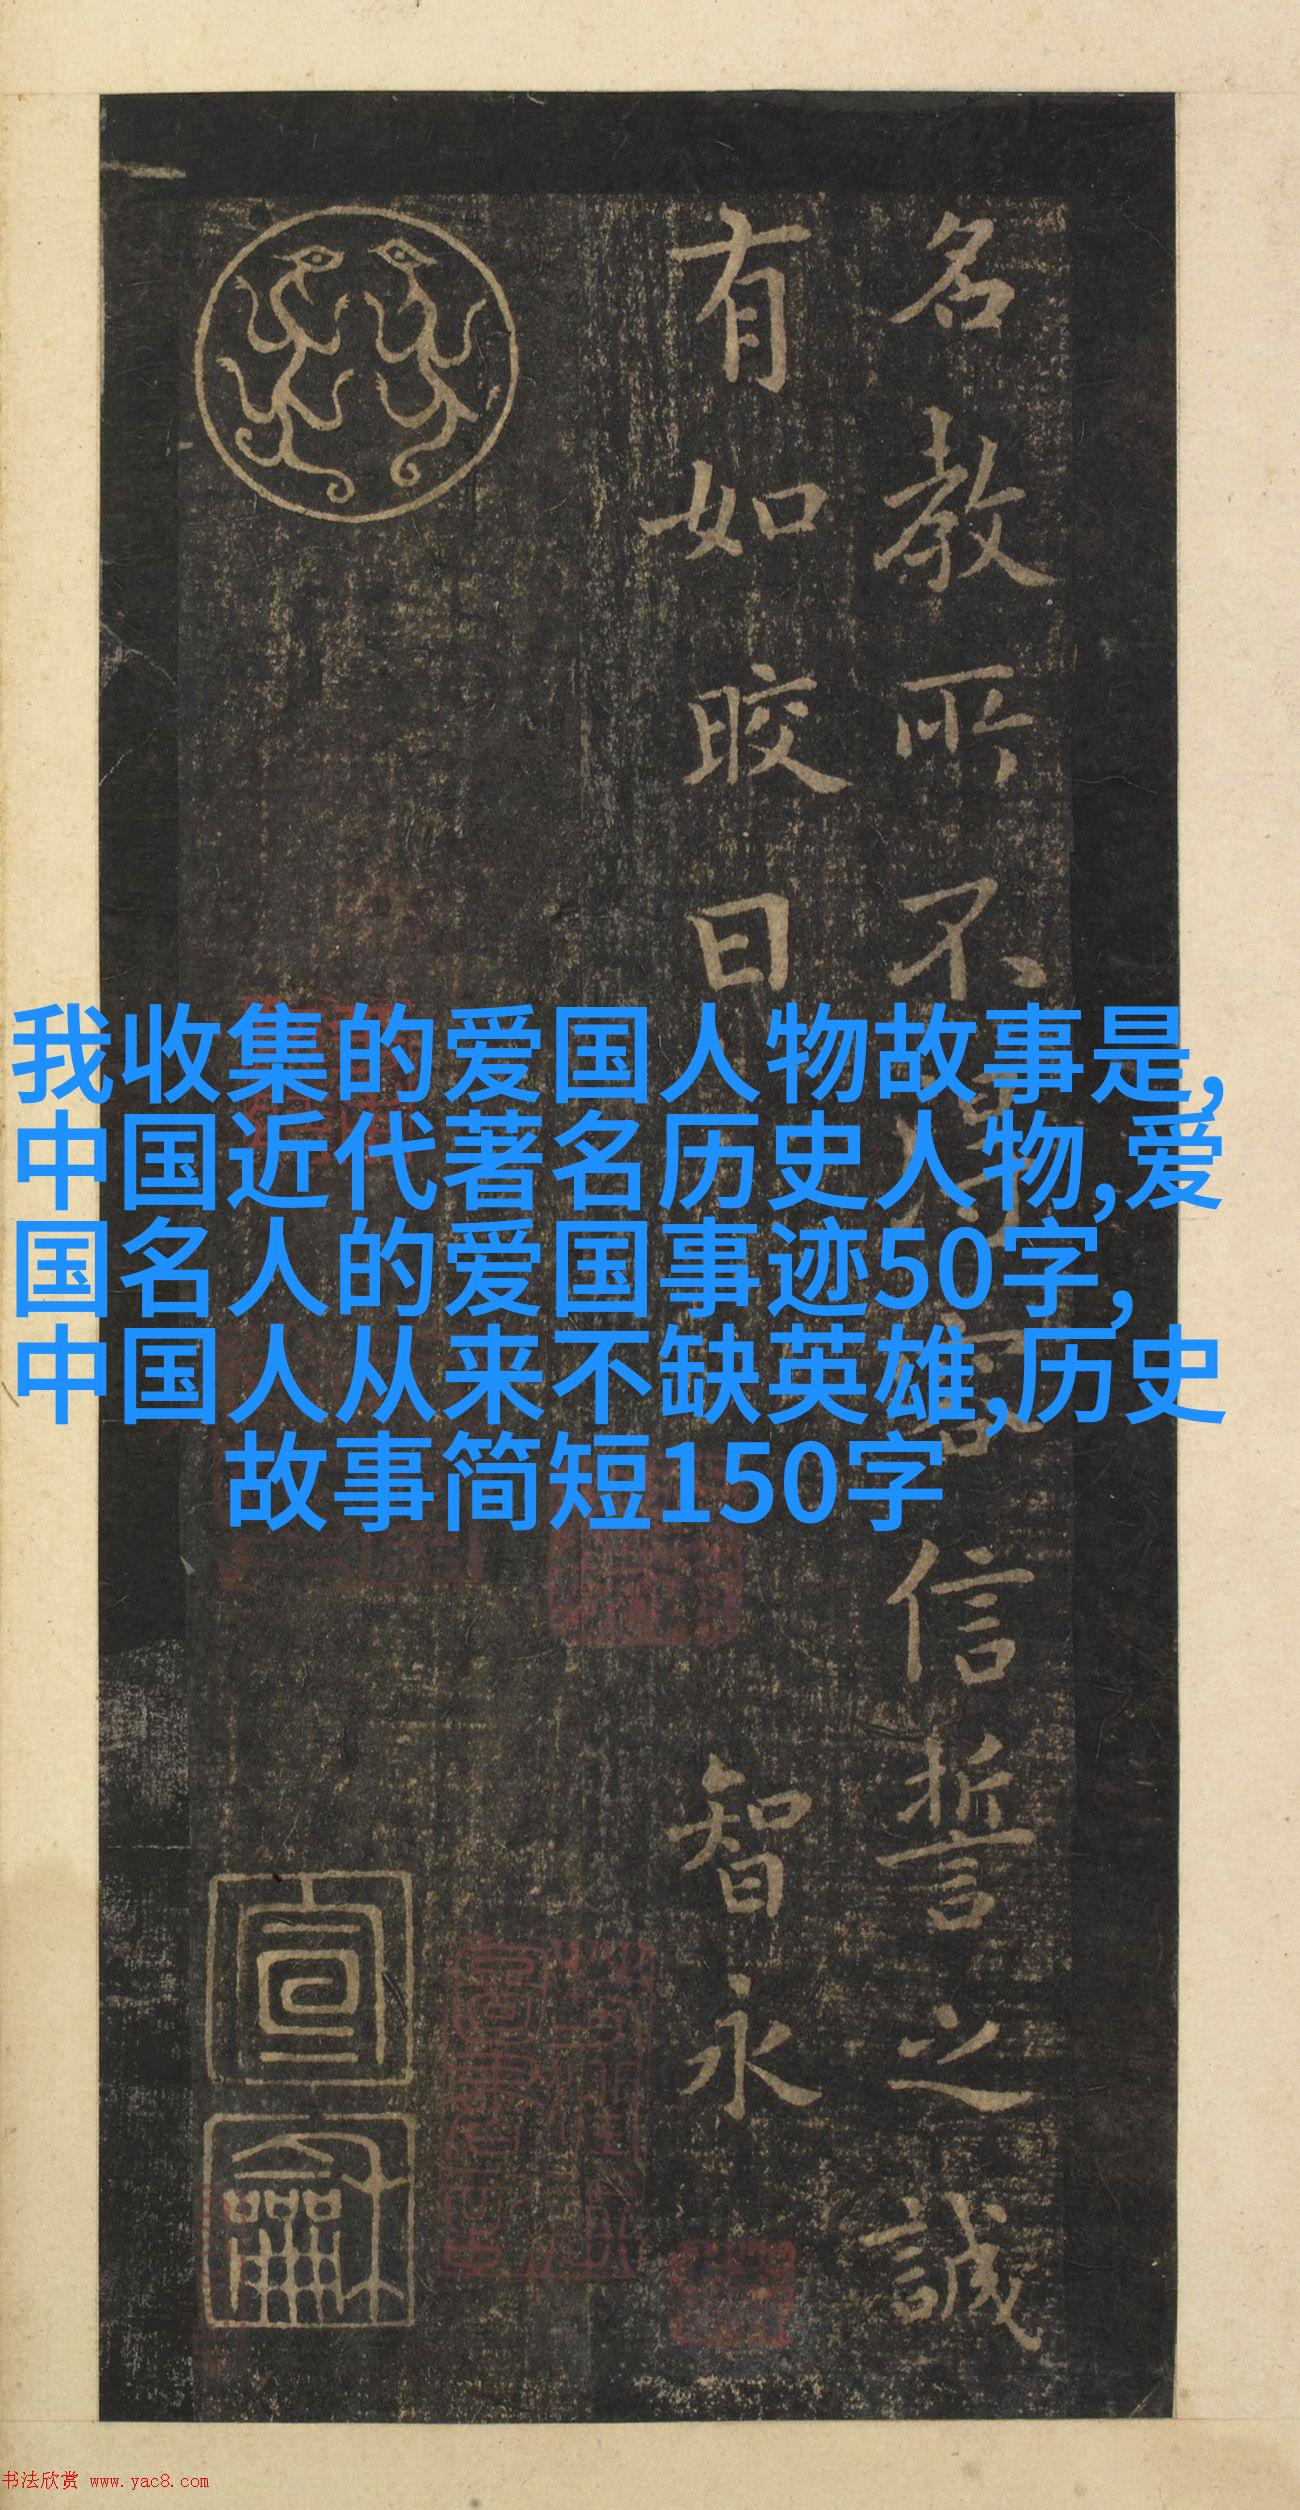 名教所不得容信誓之誠
有如晈日
智永
我收集的爱国人物故事是,
中国近代著名历史人物,爱
国名人的爱国事迹50字,
中国人从来不缺英雄,历史
故事简短150字
书法欣赏 www.yac8.com